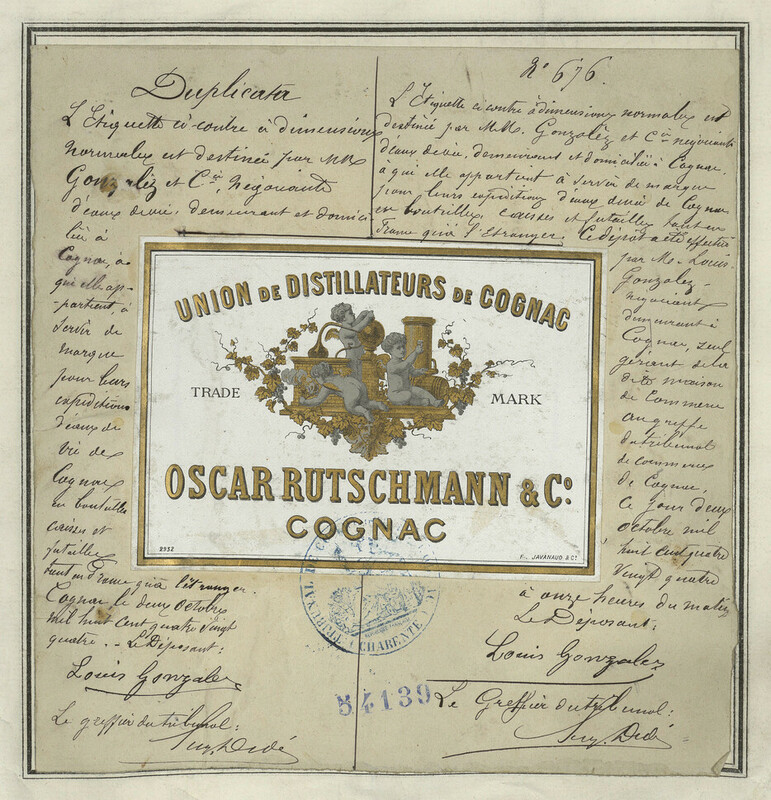 Duplicata
L'Etiquette ci contre à dimensions
normales est destinée par MM
Gonzalèz et Cie Négociants
d'eaux de vie, demeurant et domici
liés à
Cognac, à
qui elle ap-
partient à
servir de
marque
pour leurs
expéditions
d'eaux de
vie de
Cognac
en bouteilles
caisses et
futailles
tant en France qu'à l'étranger.
Cognac le deux Octobre
mil huit cent quatre vingt
quatre. - Le Déposant:
Louis Gonzalez
Le greffier du tribunal:
N° 676.
L'Etiquette ci contre à dimensions normales est
destinée par MM. Gonzalèz et Cie négociants
d'eaux de vie, demeurant et domiciliés à Cognac,
à qui elle appartient à servir de marque
pour leurs expéditions d'eaux de vie de Cognac
en bouteilles, caisses et futailles tant en
France qu'à l'Etranger. Ce dépôt a été effectué
par Mr Louis
Gonzalez
négociant
demeurant à
Cognac, seul
gérant de la
dite maison
de Commerce
au greffe
du tribunal
de commerce
de Cognac,
ce jour deux
Octobre mil
huit cent quatre
vingt quatre
à onze heures du matin
Le Déposant:
Louis Gonzalez
Le Greffier du tribunal:
UNION DE DISTILLATEURS DE COGNAC
TRADE MARK
OSCAR RUTSCHMANN & Co
COGNAC
2952
JAVANAUD & Cie
TRIBUNAL DE CO
CHARENTE
54139